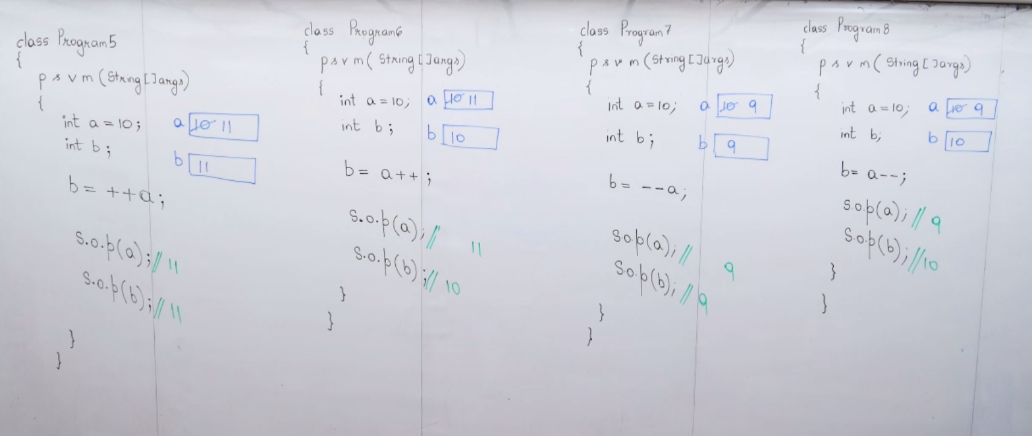 class Program5
{
p s v m (String[]args)
{
int a = 10; a 10 11
int b ; b 11
b = ++a;
s.o.p(a); // 11
s.o.p(b); // 11
}
}
class Program6
{
p s v m ( String []args)
{
int a = 10; a 10 11
int b ; b 10
b = a++ ;
s.o.p(a); // 11
s.o.p(b); // 10
}
}
class Program7
{
p s v m (String[]args)
{
int a = 10; a 10 9
int b ; b 9
b = --a;
s.o.p(a); // 9
s.o.p(b); // 9
}
}
class Program8
{
p s v m ( String []args)
{
int a = 10; a 10 9
int b; b 10
b = a--;
s.o.p(a); // 9
s.o.p(b); // 10
}
}